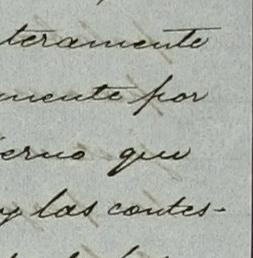 teramente
mente por
ierno que
y las contes-